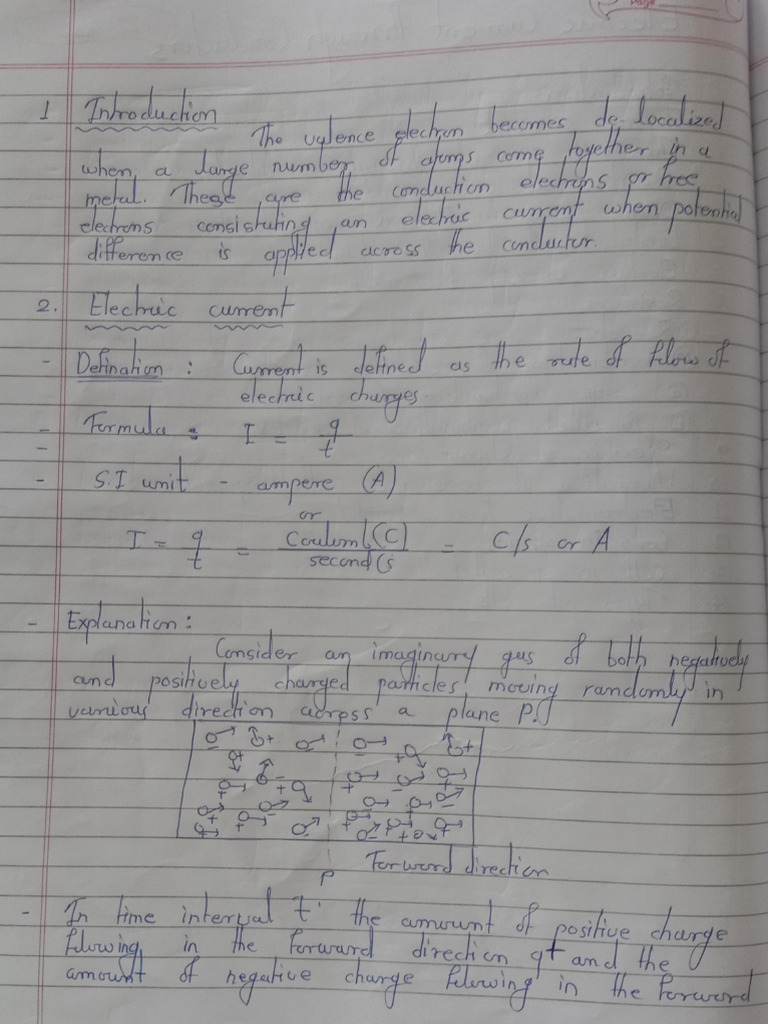 Page
1 Introduction
The valence electron becomes de-localized
when a large number of atoms come together in a
metal. These are the conduction electrons or free
electrons consistuting an electric current when potential
difference is applied across the conductor.
2. Electric current
- Defination : Current is defined as the rate of flow of
electric charges
- Formula : I = q/t
-
- S.I unit - ampere (A)
or
I = q/t = Coulomb(C)/second(s = C/s or A
- Explanation :
Consider an imaginary gas of both negatively
and positively charged particles moving randomly in
various direction across a plane P.
P Forward direction
- In time interval 't' the amount of positive charge
flowing in the forward direction q+ and the
amount of negative charge flowing in the forward